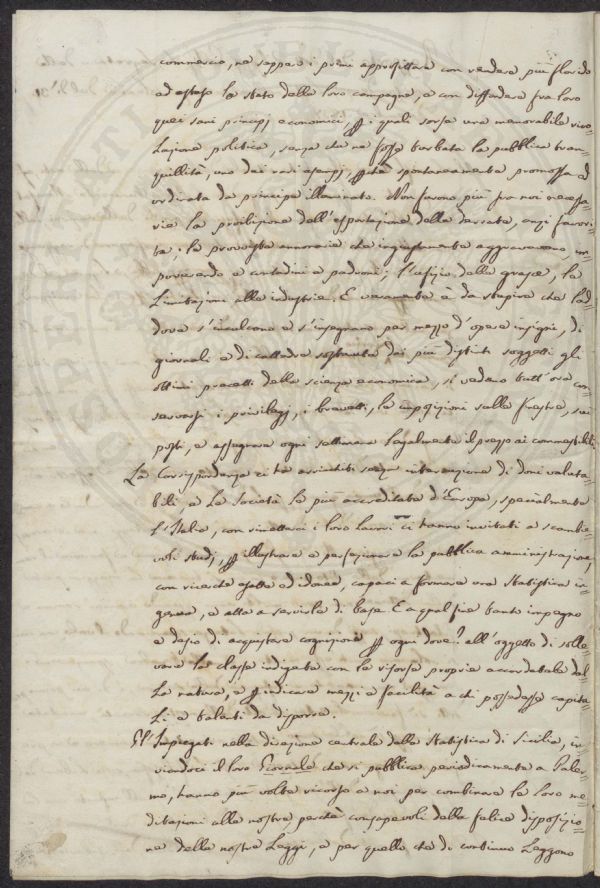 commercio, ne seppero i primi approfittare con rendere più florido
ed esteso lo stato delle loro campagne, e con diffondere fra loro
quei sani principj economici, p i quali sorse una memorabile rivo=
luzione politica, senza che ne fosse turbata la pubblica tran=
quillità, uno dei rari esempj, stata spontaneamente promossa ed
ordinata da principe illuminato. Non furono più fra noi necessa=
rie la proibizione dell'esportazione delle derrate, anzi favori=
ta; le provviste annonarie che ingiustamente aggravavano, im=
poverendo e contadini e padroni; l'ufizio della grascia, le
limitazioni alle industrie. E veramente è da stupire che lad=
dove s'inculcano e s'insegnano per mezzo d'opere insigni, di
giornali e di cattedre sostenute dai più distinti soggetti gli
ottimi precetti della scienza economica, si vedano tutt'ora con=
servarsi i privilegj, i brevetti, le imposizioni sulle finestre, sui
posti, e assegnare ogni settimana legalmente il prezzo ai commestibili.
La Corrispondenza ci ha arricchiti senza interruzione di doni valuta=
bili, e le Società le più accreditate d'Europa, specialmente
l'Italia, con rimetterci i loro lavori ci hanno invitati a scambie=
voli studj, p illustrare e perfezionare la pubblica amministrazione,
con ricerche esatte ed idonee, capaci a formare una Statistica in=
genua, e atta a servirle di base. E a qual fine tanto impegno
e desio di acquistare cognizione p ogni dove? all'oggetto di solle=
vare la classe indigente con le risorse proprie accordatele dal=
la natura, e p indicare mezzi e facilità a chi possedesse capita=
li e talenti da disporre.
Gl'Impiegati nella direzione centrale della Statistica di Sicilia, in=
viandoci il loro Giornale che si pubblica periodicamente a Paler=
mo, hanno più volte ricorso a noi per combinare le loro me=
ditazioni alle nostre perchè consapevoli della felice disposizio=
ne delle nostre Leggi, e per quello che di continuo leggono